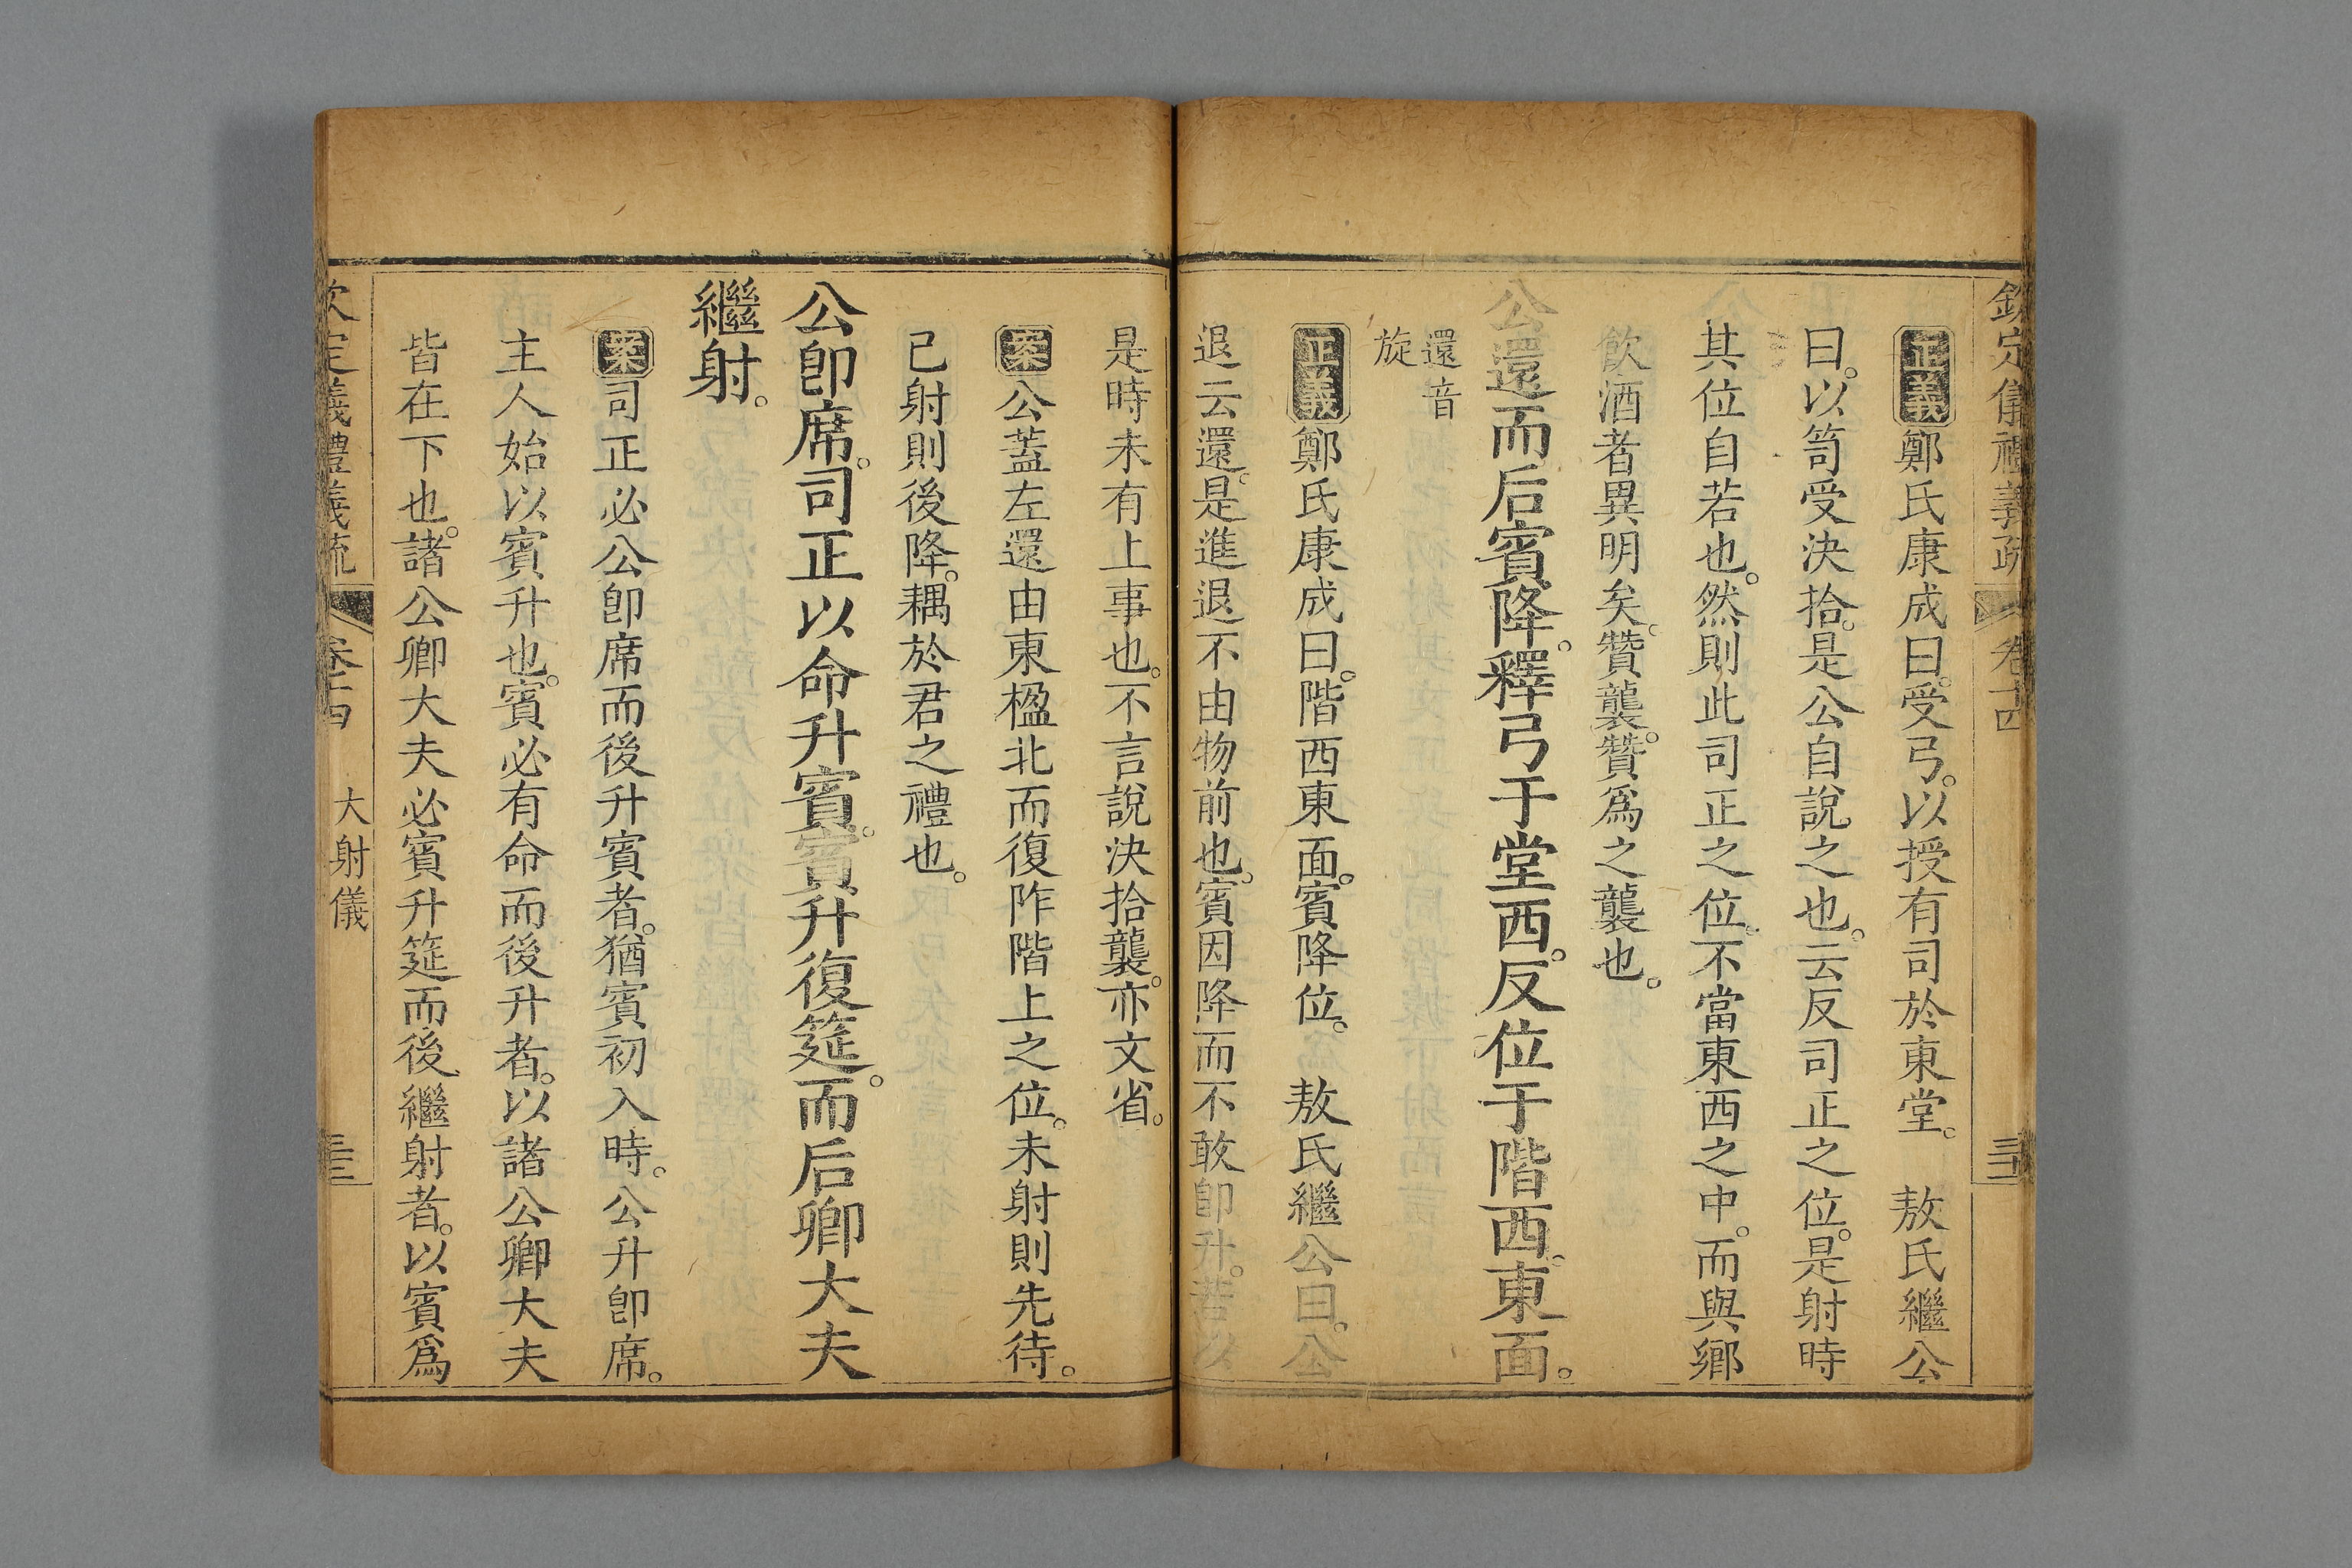 欽定儀禮義疏 卷十四
正義鄭氏康成曰。受弓。以授有司於東堂。 敖氏繼公
曰。以笥受決拾。是公自說之也。云反司正之位。是射時
其位自若也。然則此司正之位。不當東西之中。而與鄉
飲酒者異明矣。贊襲。贊爲之襲也。
公還而后賓降。釋弓于堂西。反位于階西。東面。
還音
旋
正義鄭氏康成曰。階西東面。賓降位。 敖氏繼公曰。公
退云還。是進退不由物前也。賓因降而不敢卽升。若以
是時未有上事也。不言說決拾襲。亦文省。
案公蓋左還由東楹北而復阼階上之位。未射則先待。
已射則後降。耦於君之禮也。
公卽席。司正以命升賓。賓升復筵。而后卿大夫
繼射。
案司正必公卽席而後升賓者。猶賓初入時。公升卽席。
主人始以賓升也。賓必有命而後升者。以諸公卿大夫
皆在下也。諸公卿大夫必賓升筵而後繼射者。以賓爲
欽定義禮義疏 卷十四 大射儀 三三